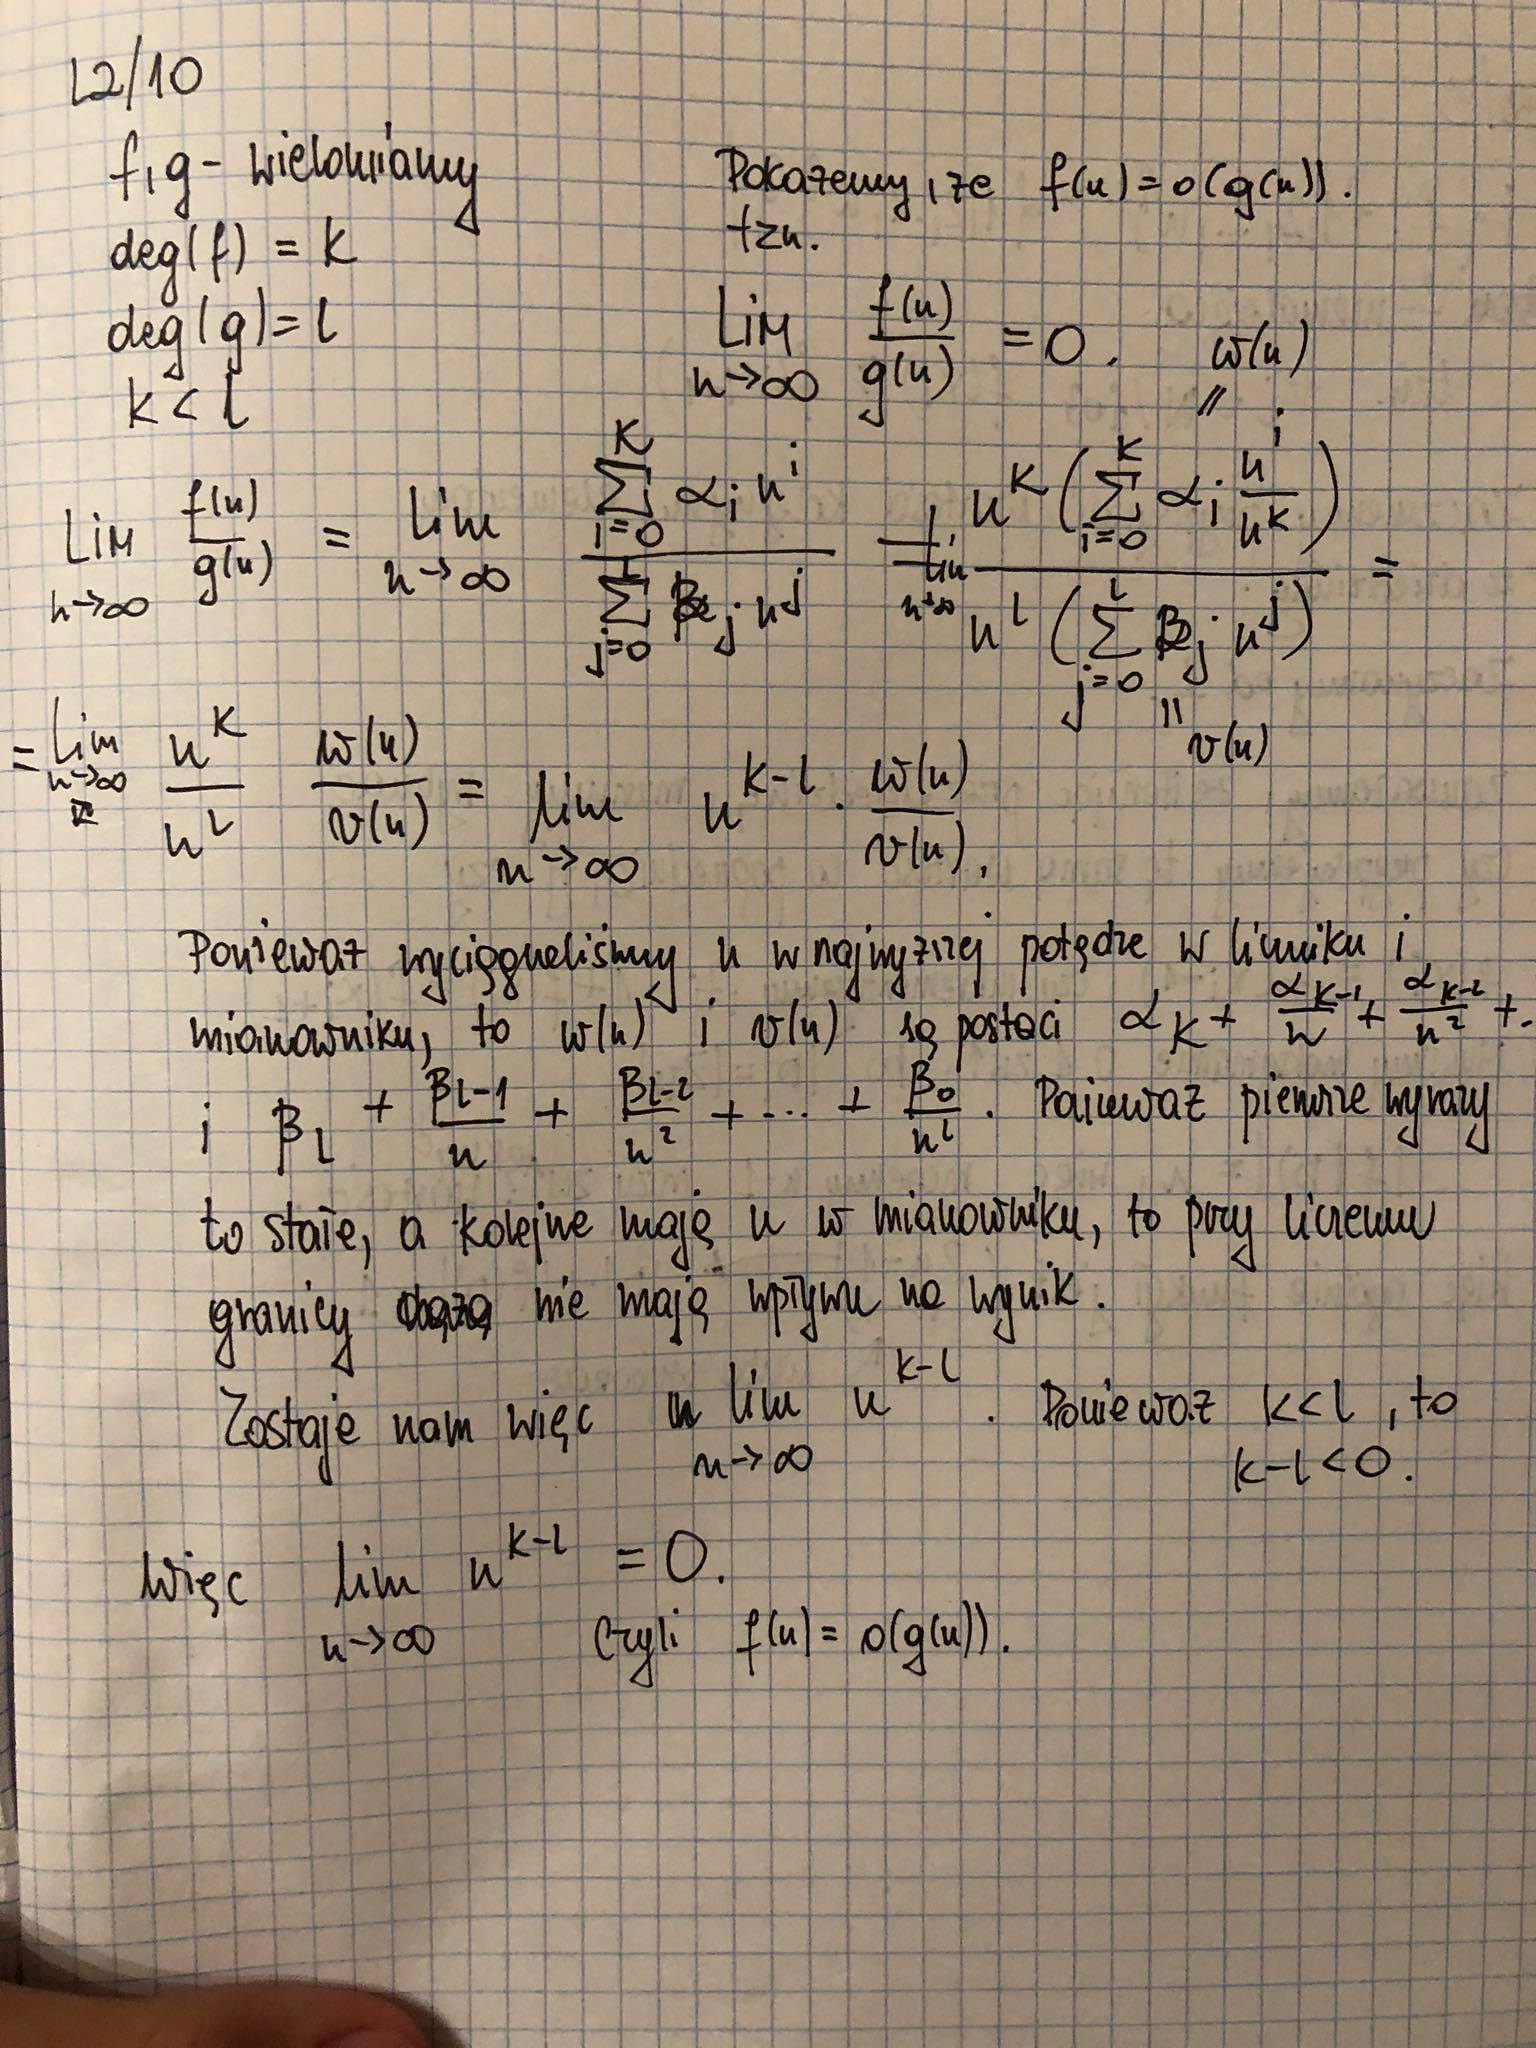 L2/10
f, g - wielomiany
deg(f) = k
deg(g) = l
k < l
Pokażemy, że f(n) = o(g(n)).
tzn.
lim n→∞ f(n)/g(n) = 0.
w(n)
lim n→∞ f(n)/g(n) = lim n→∞ (∑_{i=0}^{k} α_i n^i)/(∑_{j=0}^{l} β_j n^j) = lim n→∞ n^k (∑_{i=0}^{k} α_i n^i/n^k) / n^l (∑_{j=0}^{l} β_j n^j) =
v(n)
= lim n→∞ n^k/n^l w(n)/v(n) = lim n→∞ n^{k-l} · w(n)/v(n).
Ponieważ wyciągneliśmy n w najwyższej potędze w liczniku i
mianowniku, to w(n) i v(n) są postaci α_k + α_{k-1}/n + α_{k-2}/n² + ..
i β_l + β_{l-1}/n + β_{l-2}/n² + ... + β_0/n^l. Ponieważ pierwsze wyrazy
to stałe, a kolejne mają n w mianowniku, to przy liczeniu
granicy nie mają wpływu na wynik.
Zostaje nam więc lim n→∞ n^{k-l}. Ponieważ k<l, to
k-l<0.
Więc lim n→∞ n^{k-l} = 0.
Czyli f(n) = o(g(n)).